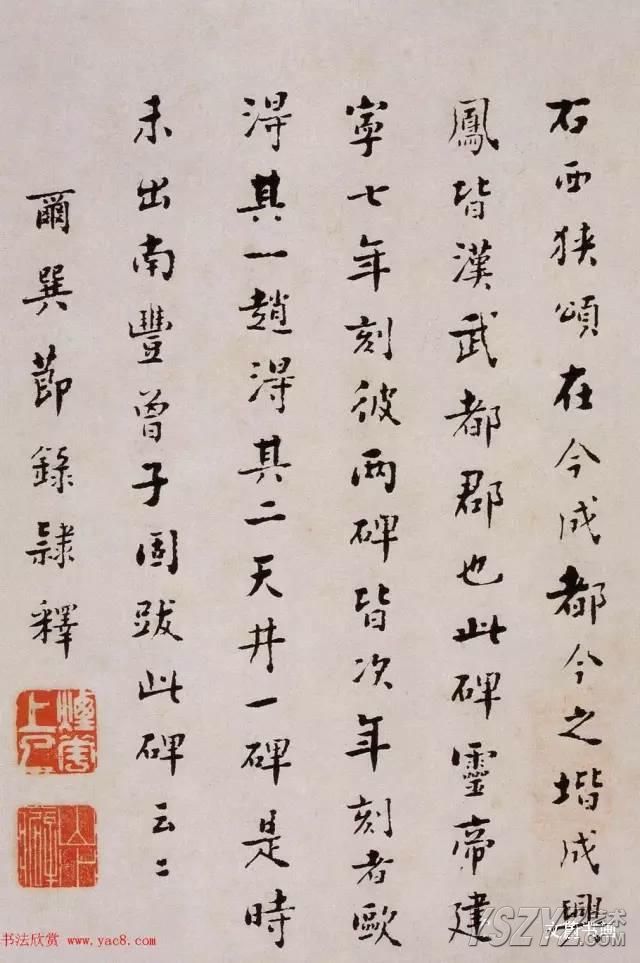 石西狭頌在今成都今之堦成興
鳳皆漢武都郡也此碑靈帝建
寧七年刻彼兩碑皆次年刻者歐
淂其一趙淂其二天井一碑是時
未出南豐曾子固跋此碑云〻
爾巽節錄隸釋
书法欣赏 www.yac8.com